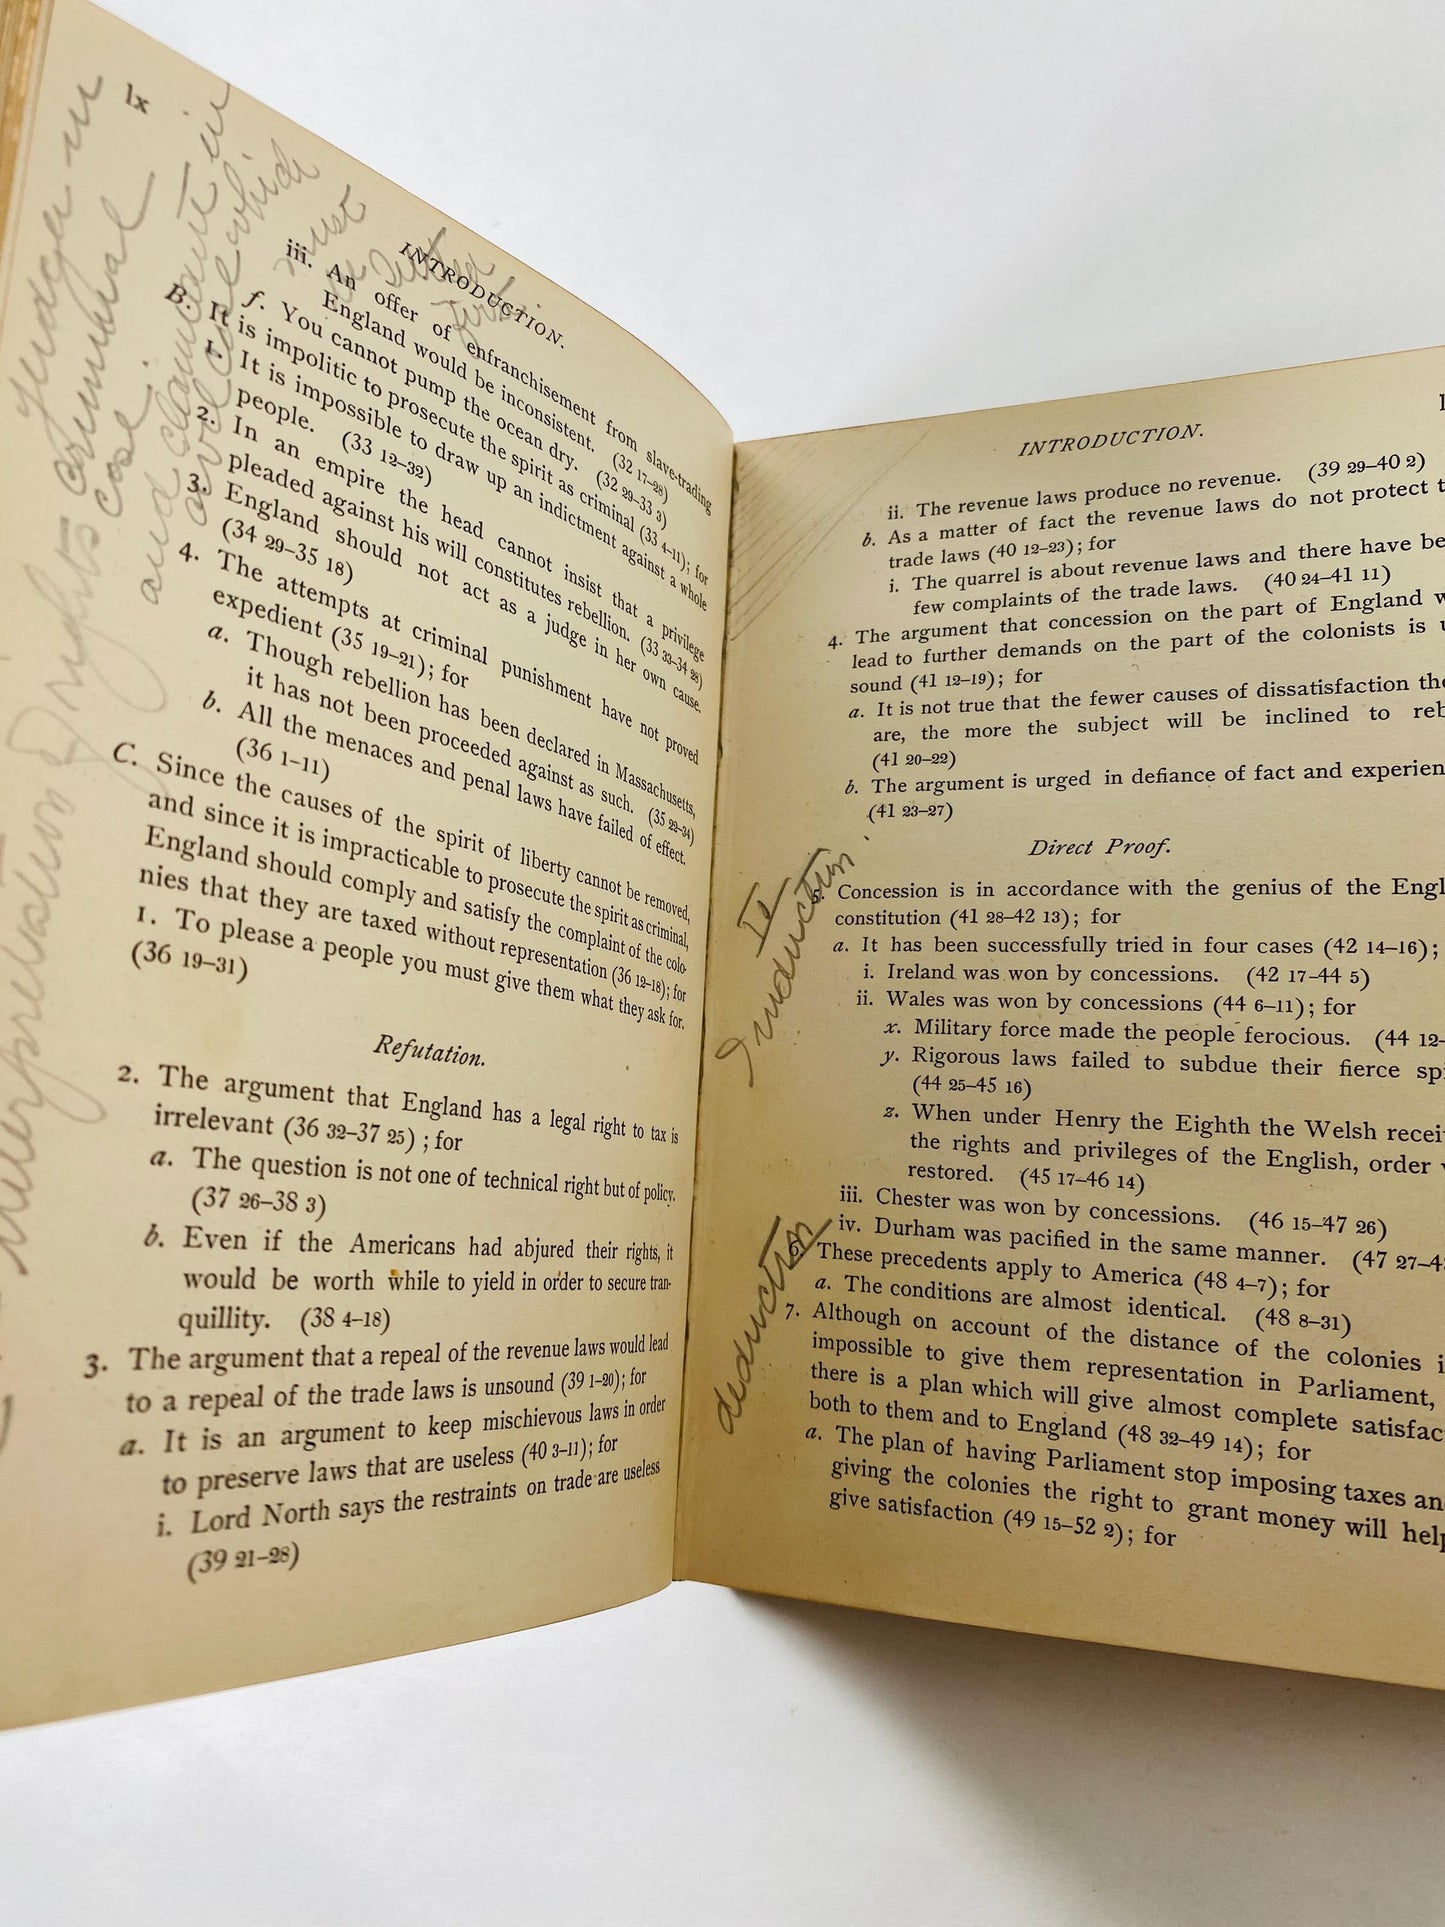 lx
INTRODUCTION.
iii. An offer of enfranchisement from slave-trading
England would be inconsistent. (32 17–28)
f. You cannot pump the ocean dry. (32 29–33 3)
B. It is impolitic to prosecute the spirit as criminal (33 4–11); for
1. It is impossible to draw up an indictment against a whole
people. (33 12–32)
2. In an empire the head cannot insist that a privilege
pleaded against his will constitutes rebellion. (33 33–34 28)
3. England should not act as a judge in her own cause.
(34 29–35 18)
4. The attempts at criminal punishment have not proved
expedient (35 19–21); for
a. Though rebellion has been declared in Massachusetts,
it has not been proceeded against as such. (35 22–34)
b. All the menaces and penal laws have failed of effect.
(36 1–11)
C. Since the causes of the spirit of liberty cannot be removed,
and since it is impracticable to prosecute the spirit as criminal,
England should comply and satisfy the complaint of the colo-
nies that they are taxed without representation (36 12–18); for
1. To please a people you must give them what they ask for.
(36 19–31)
Refutation.
2. The argument that England has a legal right to tax is
irrelevant (36 32–37 25) ; for
a. The question is not one of technical right but of policy.
(37 26–38 3)
b. Even if the Americans had abjured their rights, it
would be worth while to yield in order to secure tran-
quillity. (38 4–18)
3. The argument that a repeal of the revenue laws would lead
to a repeal of the trade laws is unsound (39 1–20); for
a. It is an argument to keep mischievous laws in order
to preserve laws that are useless (40 3–11); for
i. Lord North says the restraints on trade are useless
(39 21–28)
judge in
criminal
case
and claimant in
civil case which
must
be settled
first
INTRODUCTION.
ii. The revenue laws produce no revenue. (39 29–40 2)
b. As a matter of fact the revenue laws do not protect t
trade laws (40 12–23); for
i. The quarrel is about revenue laws and there have be
few complaints of the trade laws. (40 24–41 11)
4. The argument that concession on the part of England w
lead to further demands on the part of the colonists is u
sound (41 12–19); for
a. It is not true that the fewer causes of dissatisfaction the
are, the more the subject will be inclined to reb
(41 20–22)
b. The argument is urged in defiance of fact and experien
(41 23–27)
Direct Proof.
5. Concession is in accordance with the genius of the Engl
constitution (41 28–42 13); for
a. It has been successfully tried in four cases (42 14–16);
i. Ireland was won by concessions. (42 17–44 5)
ii. Wales was won by concessions (44 6–11); for
x. Military force made the people ferocious. (44 12–
y. Rigorous laws failed to subdue their fierce spi
(44 25–45 16)
z. When under Henry the Eighth the Welsh recei
the rights and privileges of the English, order w
restored. (45 17–46 14)
iii. Chester was won by concessions. (46 15–47 26)
iv. Durham was pacified in the same manner. (47 27–4
6. These precedents apply to America (48 4–7); for
a. The conditions are almost identical. (48 8–31)
7. Although on account of the distance of the colonies i
impossible to give them representation in Parliament,
there is a plan which will give almost complete satisfac
both to them and to England (48 32–49 14); for
a. The plan of having Parliament stop imposing taxes an
giving the colonies the right to grant money will help
give satisfaction (49 15–52 2); for
Induction
deduction